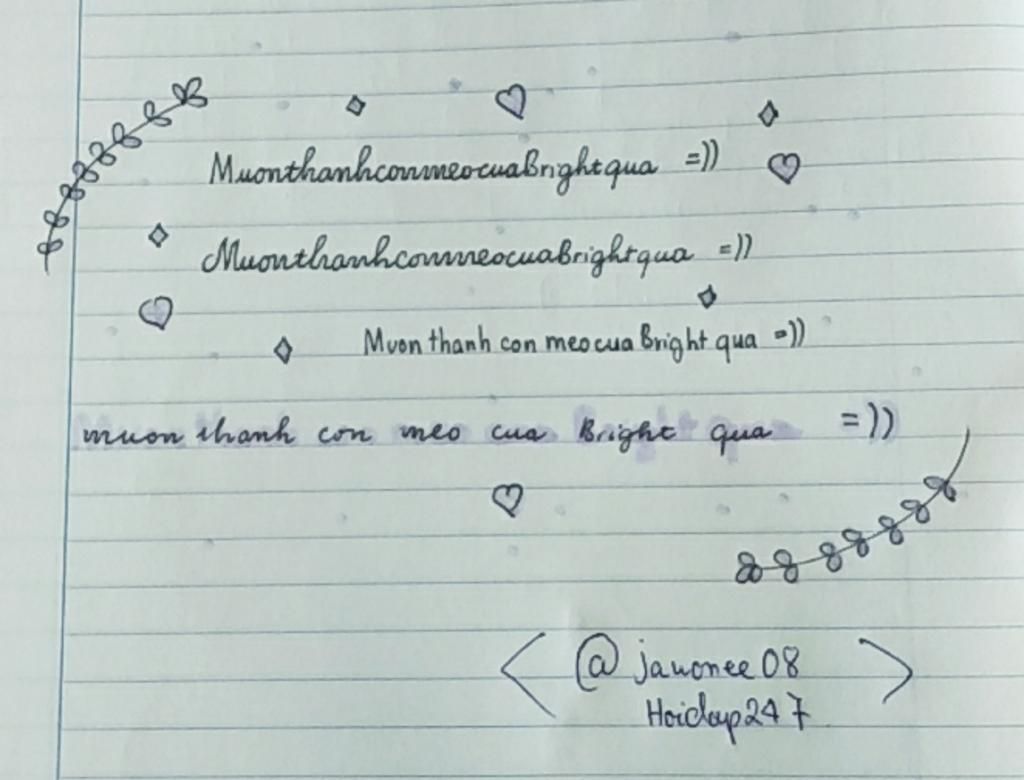 MuonthanhconmeocuaBrightqua =))
MuonthanhconmeocuaBrightqua =))
Muon thanh con meo cua Bright qua =))
muon thanh con meo cua Bright qua =))
< @ jawonee08 >
Hoidap247